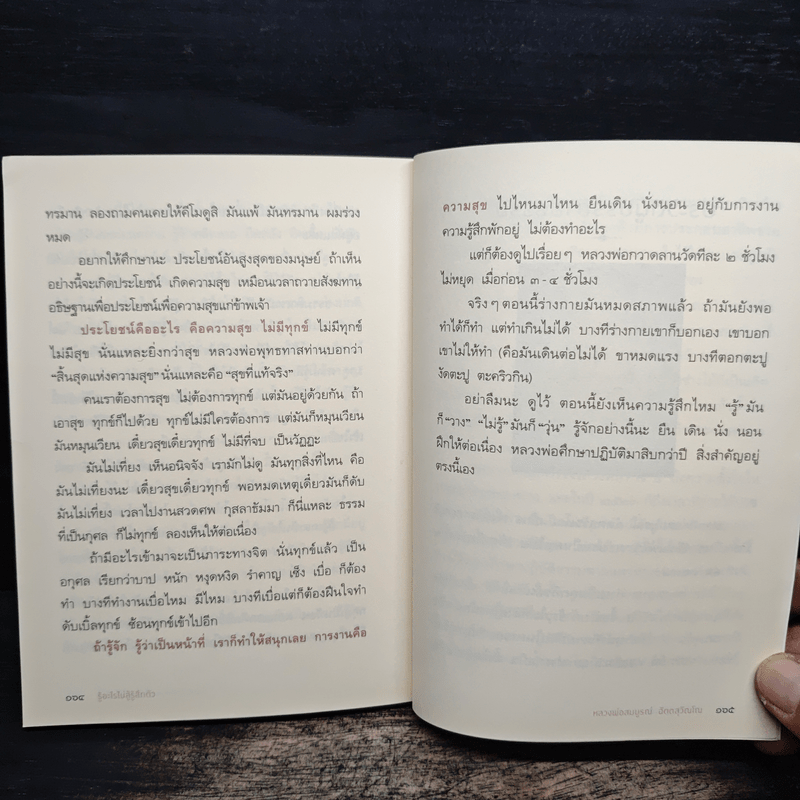 ทรมาน ลองถามคนเคยให้คีโมดูสิ มันแพ้ มันทรมาน ผมร่วง
หมด
อยากให้ศึกษานะ ประโยชน์อันสูงสุดของมนุษย์ ถ้าเห็น
อย่างนี้จะเกิดประโยชน์ เกิดความสุข เหมือนเวลาถวายสังฆทาน
อธิษฐานเพื่อประโยชน์เพื่อความสุขแก่ข้าพเจ้า
ประโยชน์คืออะไร คือความสุข ไม่มีทุกข์ ไม่มีทุกข์
ไม่มีสุข นั่นแหละยิ่งกว่าสุข หลวงพ่อพุทธทาสท่านบอกว่า
“สิ้นสุดแห่งความสุข” นั่นแหละคือ “สุขที่แท้จริง”
คนเราต้องการสุข ไม่ต้องการทุกข์ แต่มันอยู่ด้วยกัน ถ้า
เอาสุข ทุกข์ก็ไปด้วย ทุกข์ไม่มีใครต้องการ แต่มันก็หมุนเวียน
มันหมุนเวียน เดี๋ยวสุขเดี๋ยวทุกข์ ไม่มีที่จบ เป็นวัฏฏะ
มันไม่เที่ยง เห็นอนิจจัง เรามักไม่ดู มันทุกสิ่งที่ไหน คือ
มันไม่เที่ยงนะ เดี๋ยวสุขเดี๋ยวทุกข์ พอหมดเหตุเดี๋ยวมันก็ดับ
มันไม่เที่ยง เวลาไปงานสวดศพ กุสลาธัมมา ก็นี่แหละ ธรรม
ที่เป็นกุศล ก็ไม่ทุกข์ ลองเห็นให้ต่อเนื่อง
ถ้ามีอะไรเข้ามาจะเป็นภาระทางจิต นั่นทุกข์แล้ว เป็น
อกุศล เรียกว่าบาป หนัก หงุดหงิด รำคาญ เซ็ง เบื่อ ก็ต้อง
ทำ บางทีทำงานเบื่อไหม มีไหม บางทีเบื่อแต่ก็ต้องฝืนใจทำ
ดับเบิ้ลทุกข์ ซ้อนทุกข์เข้าไปอีก
ถ้ารู้จัก รู้ว่าเป็นหน้าที่ เราก็ทำให้สนุกเลย การงานคือ
๑๖๔
ความสุข ไปไหนมาไหน ยืนเดิน นั่งนอน อยู่กับการงาน
ความรู้สึกพักอยู่ ไม่ต้องทำอะไร
แต่ก็ต้องดูไปเรื่อยๆ หลวงพ่อกวาดลานวัดทีละ ๒ ชั่วโมง
ไม่หยุด เมื่อก่อน ๓-๔ ชั่วโมง
จริงๆ ตอนนี้ร่างกายมันหมดสภาพแล้ว ถ้ามันยังพอ
ทำได้ก็ทำ แต่ทำเกินไม่ได้ บางทีร่างกายเขาก็บอกเอง เขาบอก
เขาไม่ให้ทำ (คือมันเดินต่อไม่ได้ ขาหมดแรง บางทีตอกตะปู
งัดตะปู ตะคริวกิน)
อย่าลืมนะ ดูไว้ ตอนนี้ยังเห็นความรู้สึกไหม “รู้” มัน
ก็ “วาง” “ไม่รู้” มันก็ “วุ่น” รู้จักอย่างนี้นะ ยืน เดิน นั่ง นอน
ฝึกให้ต่อเนื่อง หลวงพ่อศึกษาปฏิบัติมาสิบกว่าปี สิ่งสำคัญอยู่
ตรงนี้เอง
หลวงพ่อสมบูรณ์ ฉัตตสุวัณโณ ๑๖๕